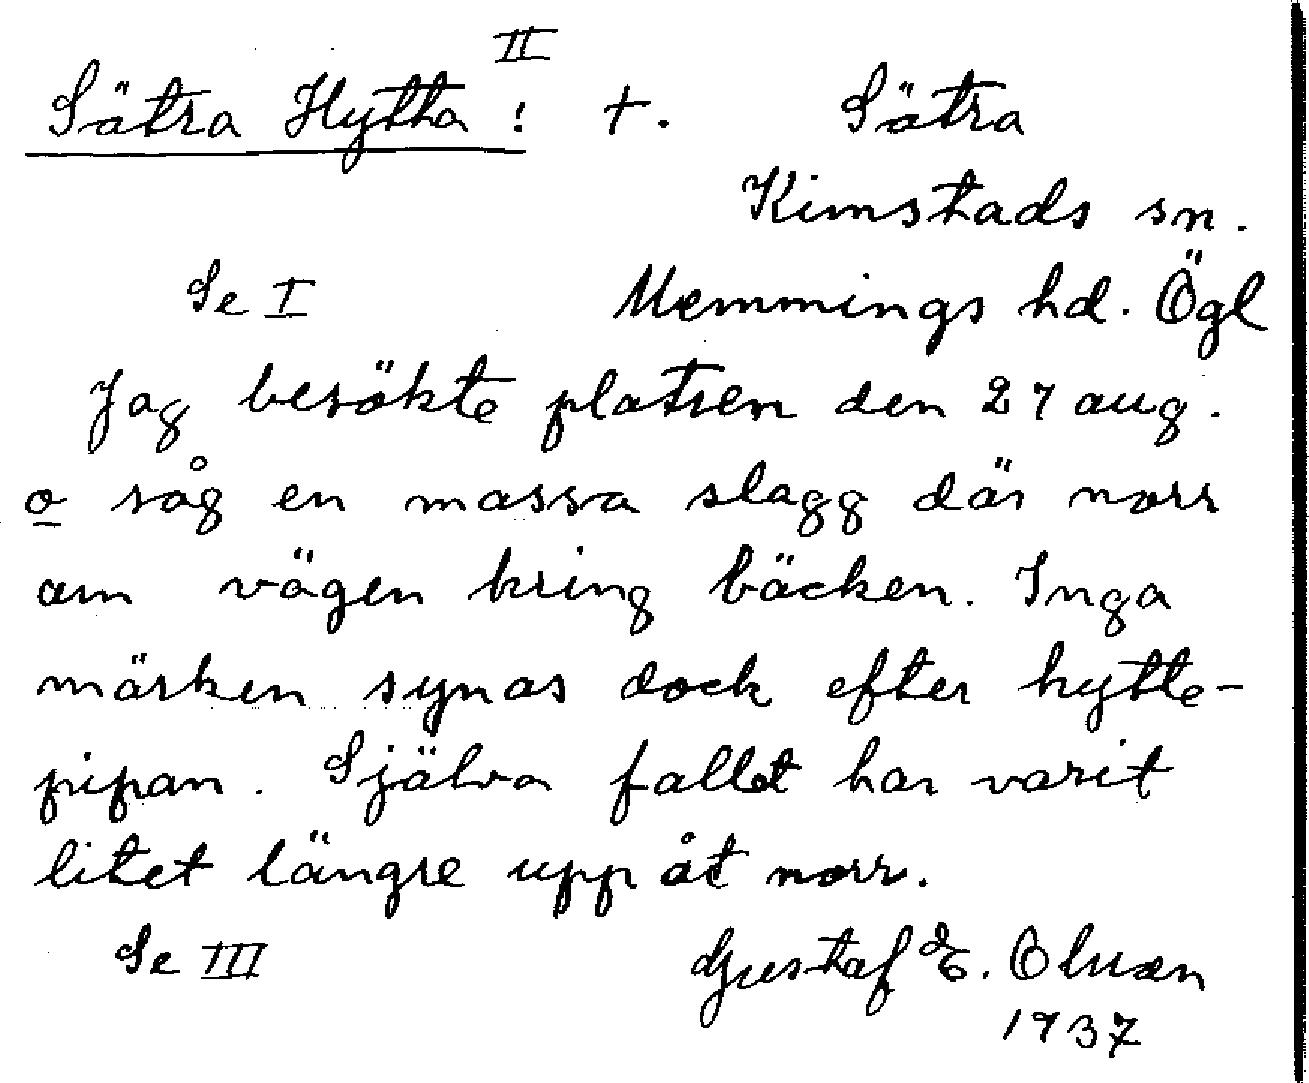 II
Sätra Hytta ! +. Sätra
Kimstads sn.
Se I Memmings hd. Ögl
Jag besökte platsen den 27 aug.
o såg en massa slagg där norr
om vägen kring bäcken. Inga
märken synas dock efter hytte-
pipan. Själva fallet har varit
litet längre upp åt norr.
Se III Gustaf E. Olson
1937